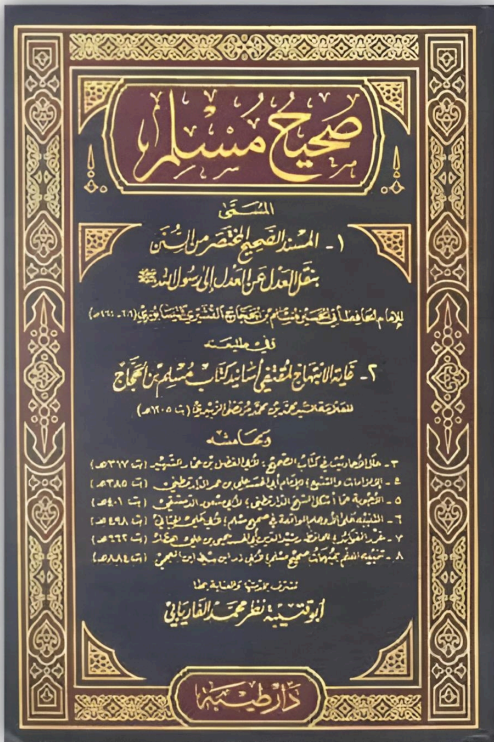 صحيح مسلم
المسمى
١- المسند الصحيح المختصر من السنن
بنقل العدل عن العدل إلى رسول الله ﷺ
للإمام الحافظ أبي الحسين مسلم بن الحجاج القشيري النيسابوري (٢٠٦-٢٦١هـ)
وفي طليعته
٢- غاية الابتهاج لمقتفي أسانيد كتاب مسلم بن الحجاج
للعلامة السيد محمد بن محمد مرتضى الزبيدي (ت ١٢٠٥هـ)
وبهامشه
٣- علل الأحاديث في كتاب الصحيح؛ لأبي الفضل بن عمار الشهيد (ت ٣١٧هـ)
٤- الإلزامات والتتبع؛ للإمام أبي الحسن علي بن عمر الدارقطني (ت ٣٨٥هـ)
٥- الأجوبة عما أشكل الشيخ الدارقطني؛ لأبي مسعود الدمشقي (ت ٤٠١هـ)
٦- التنبيه على الأوهام الواقعة في صحيح مسلم؛ لأبي علي الجياني (ت ٤٩٨هـ)
٧- غرر الفوائد؛ للحافظ رشيد الدين يحيى بن علي العطار (ت ٦٦٢هـ)
٨- تنبيه المعلم بمبهمات صحيح مسلم؛ لأبي ذر ابن سبط ابن العجمي (ت ٨٨٤هـ)
تشرف بخدمتها والعناية بها
أبو قتيبة نظر محمد الفاريابي
دار طيبة